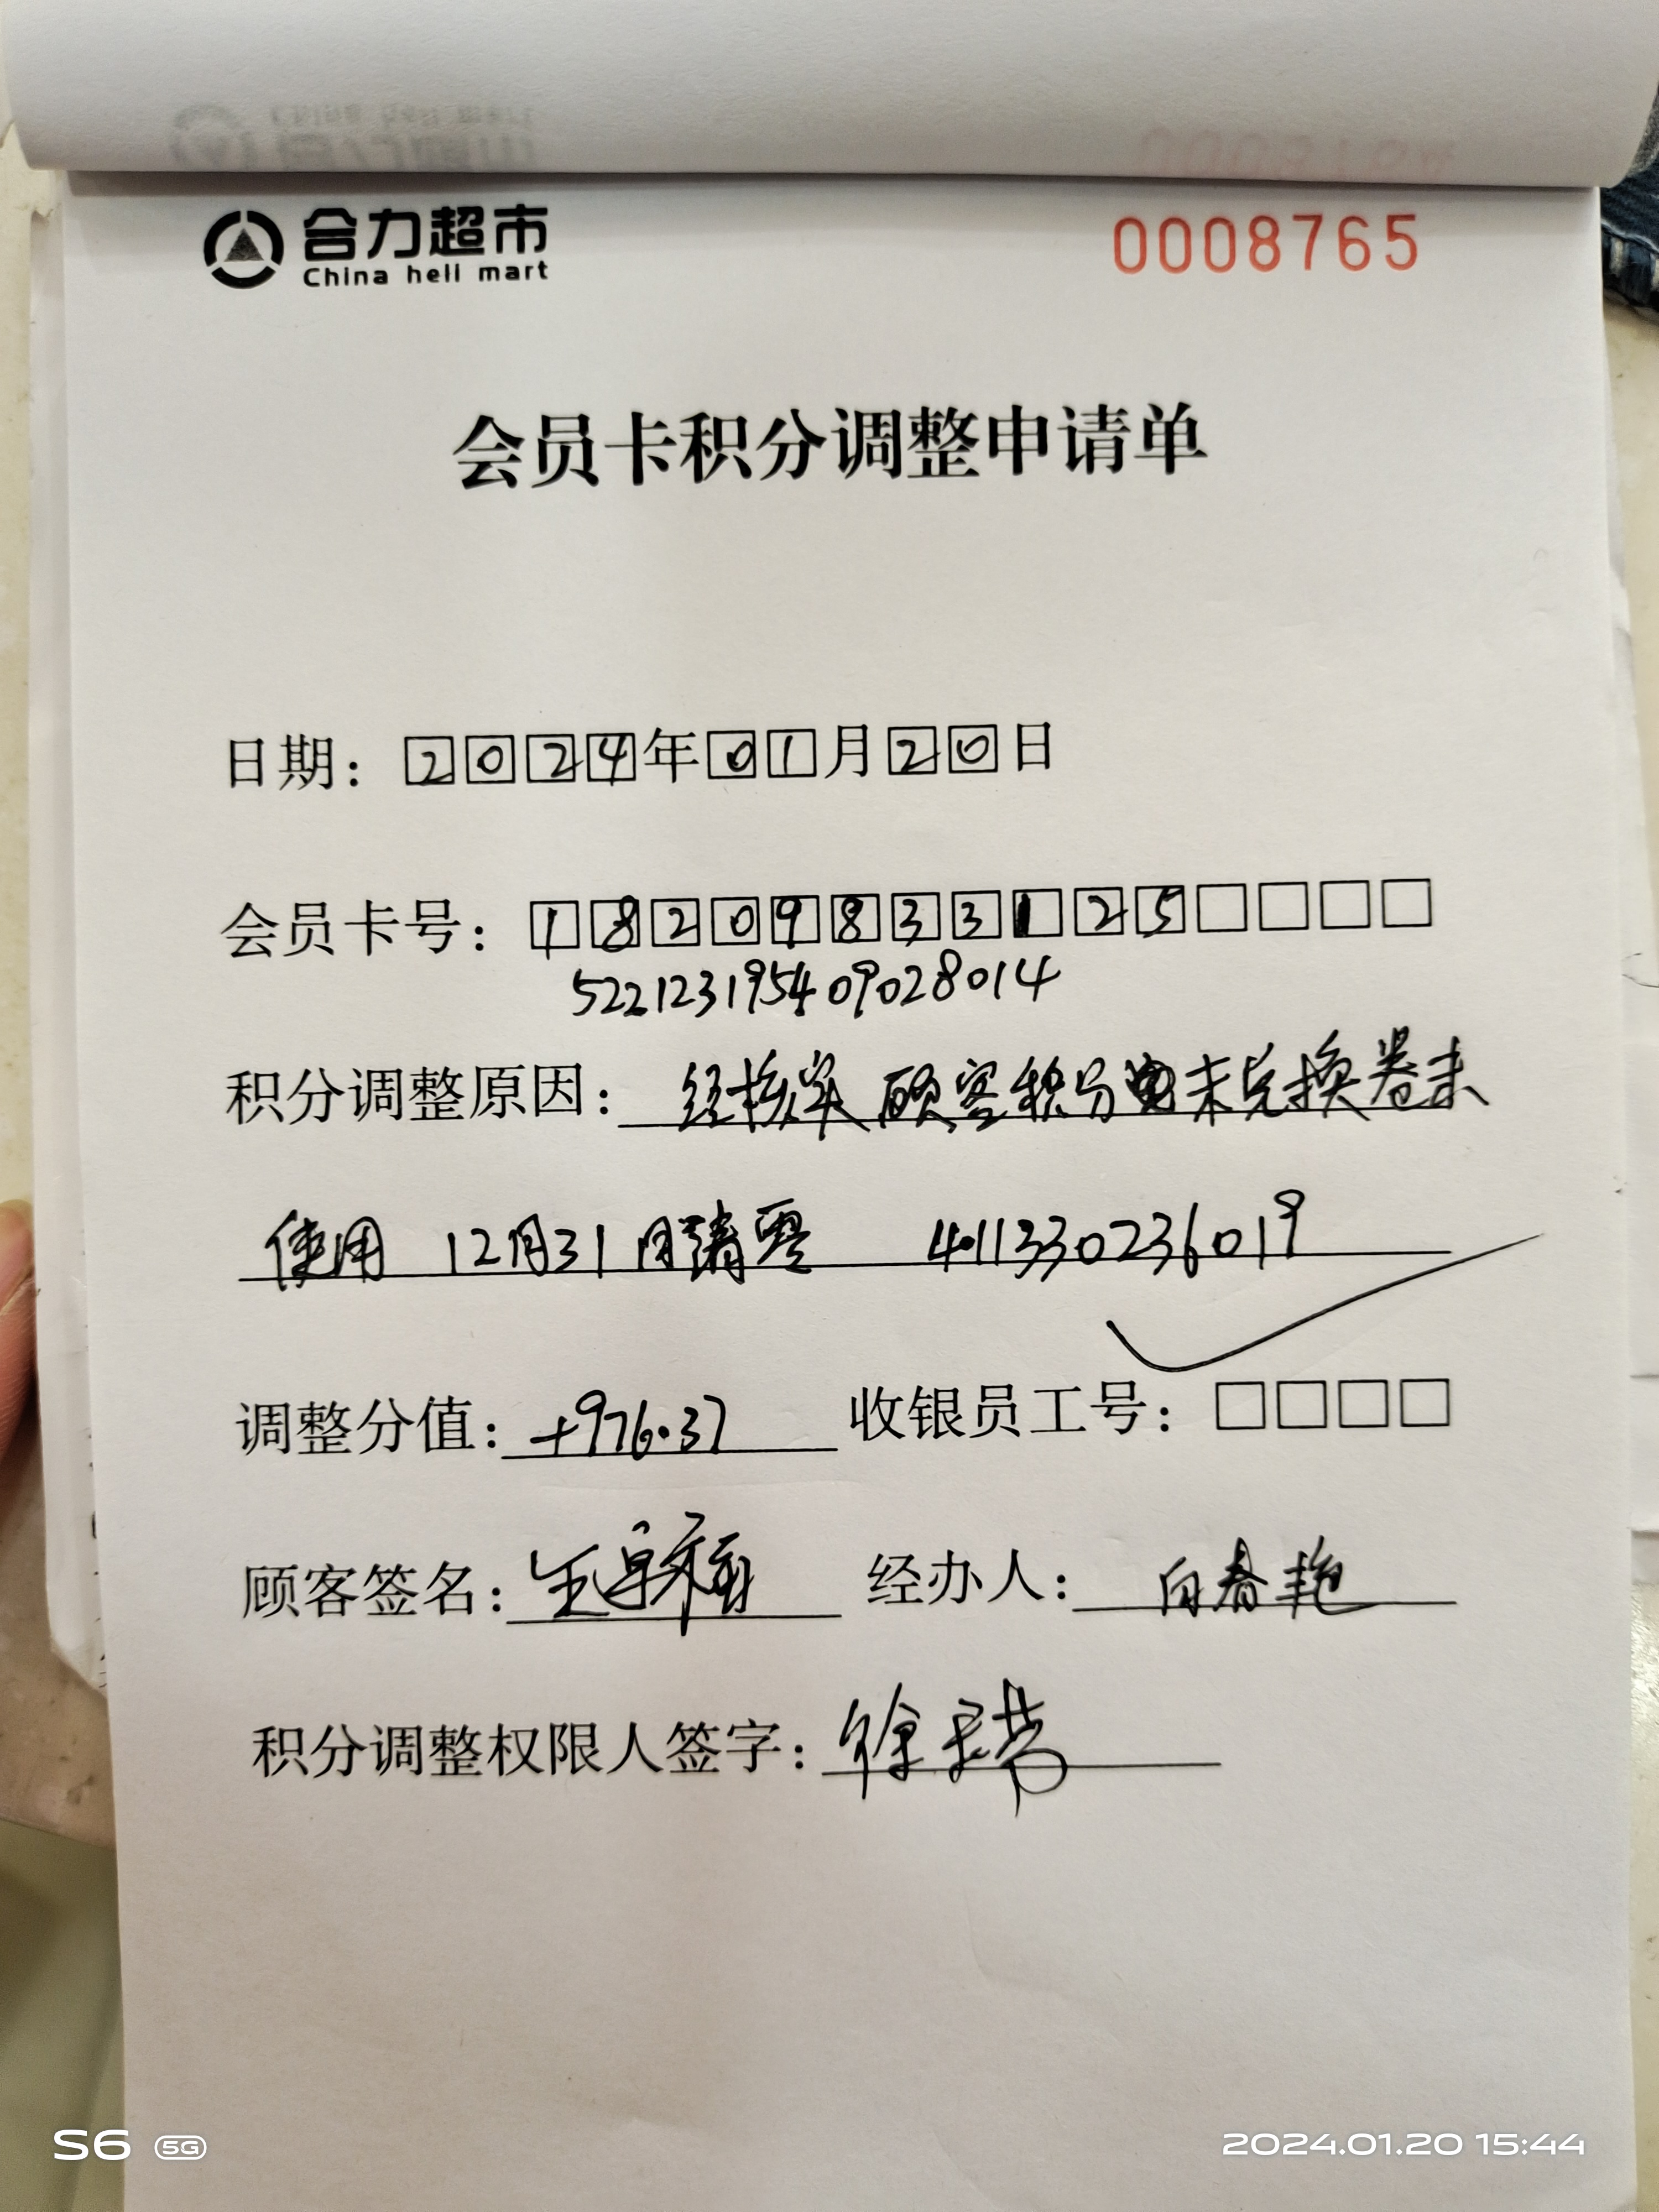 合力超市
China heli mart
0008765
会员卡积分调整申请单
日期：2024年01月20日
会员卡号：18209833125□□□□
522123195409028014
积分调整原因：经核实顾客积分未兑换卷未
使用 12月31日清零 411330236019
调整分值：+976.37 收银员工号：□□□□
顾客签名：王 经办人：向春艳
积分调整权限人签字：徐
S6 5G
2024.01.20 15:44